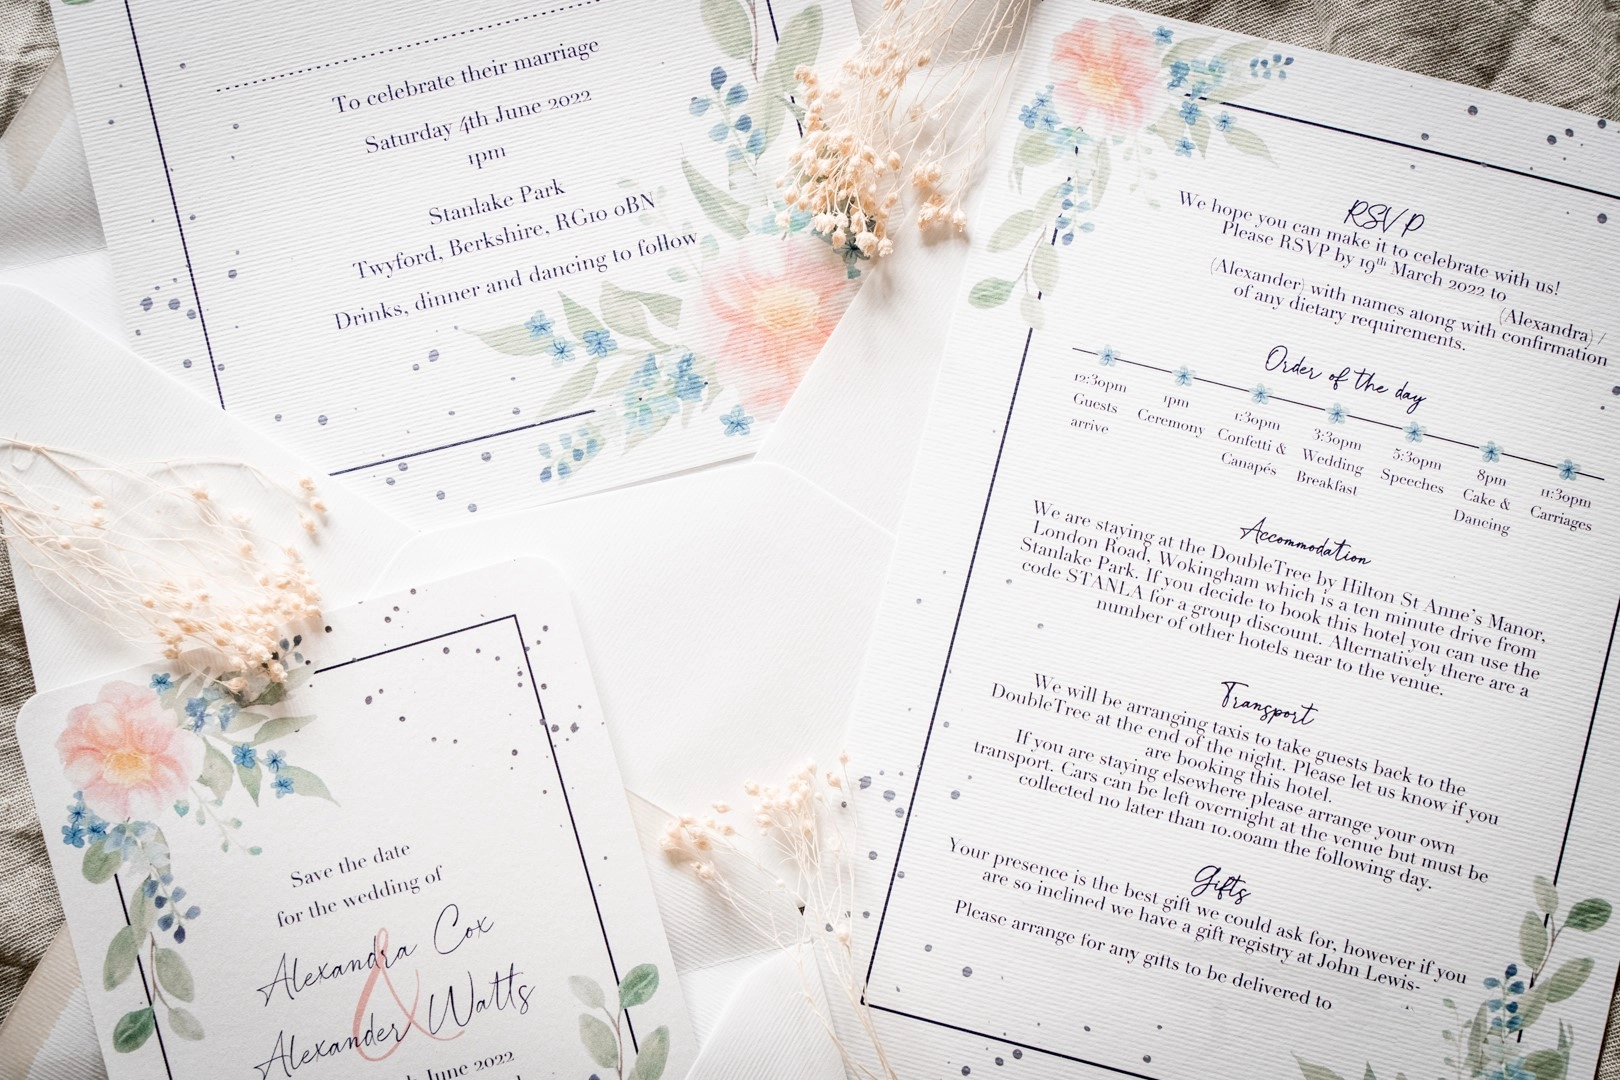 To celebrate their marriage
Saturday 4th June 2022
1pm
Stanlake Park
Twyford, Berkshire, RG10 0BN
Drinks, dinner and dancing to follow
Save the date
for the wedding of
Alexandra Cox
&
Alexander Watts
June 2022
RSVP
We hope you can make it to celebrate with us!
Please RSVP by 19th March 2022 to
(Alexandra) /
(Alexander) with names along with confirmation
of any dietary requirements.
Order of the day
12:30pm
Guests
arrive
1pm
Ceremony
1:30pm
Confetti &
Canapés
3:30pm
Wedding
Breakfast
5:30pm
Speeches
8pm
Cake &
Dancing
11:30pm
Carriages
Accommodation
We are staying at the DoubleTree by Hilton St Anne's Manor,
London Road, Wokingham which is a ten minute drive from
Stanlake Park. If you decide to book this hotel you can use the
code STANLA for a group discount. Alternatively there are a
number of other hotels near to the venue.
Transport
We will be arranging taxis to take guests back to the
DoubleTree at the end of the night. Please let us know if you
are booking this hotel.
If you are staying elsewhere please arrange your own
transport. Cars can be left overnight at the venue but must be
collected no later than 10.00am the following day.
Gifts
Your presence is the best gift we could ask for, however if you
are so inclined we have a gift registry at John Lewis-
Please arrange for any gifts to be delivered to